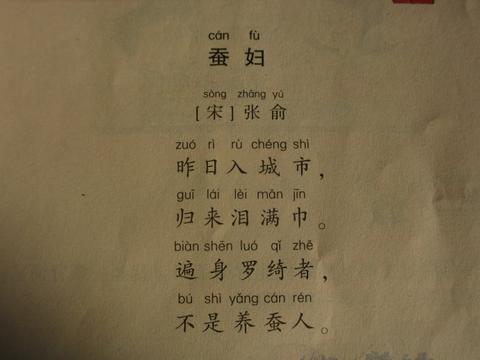 cán fù
蚕妇
sòng zhāng yú
[宋]张俞
zuó rì rù chéng shì
昨日入城市，
guī lái lèi mǎn jīn
归来泪满巾。
biàn shēn luó qǐ zhě
遍身罗绮者，
bú shì yǎng cán rén
不是养蚕人。